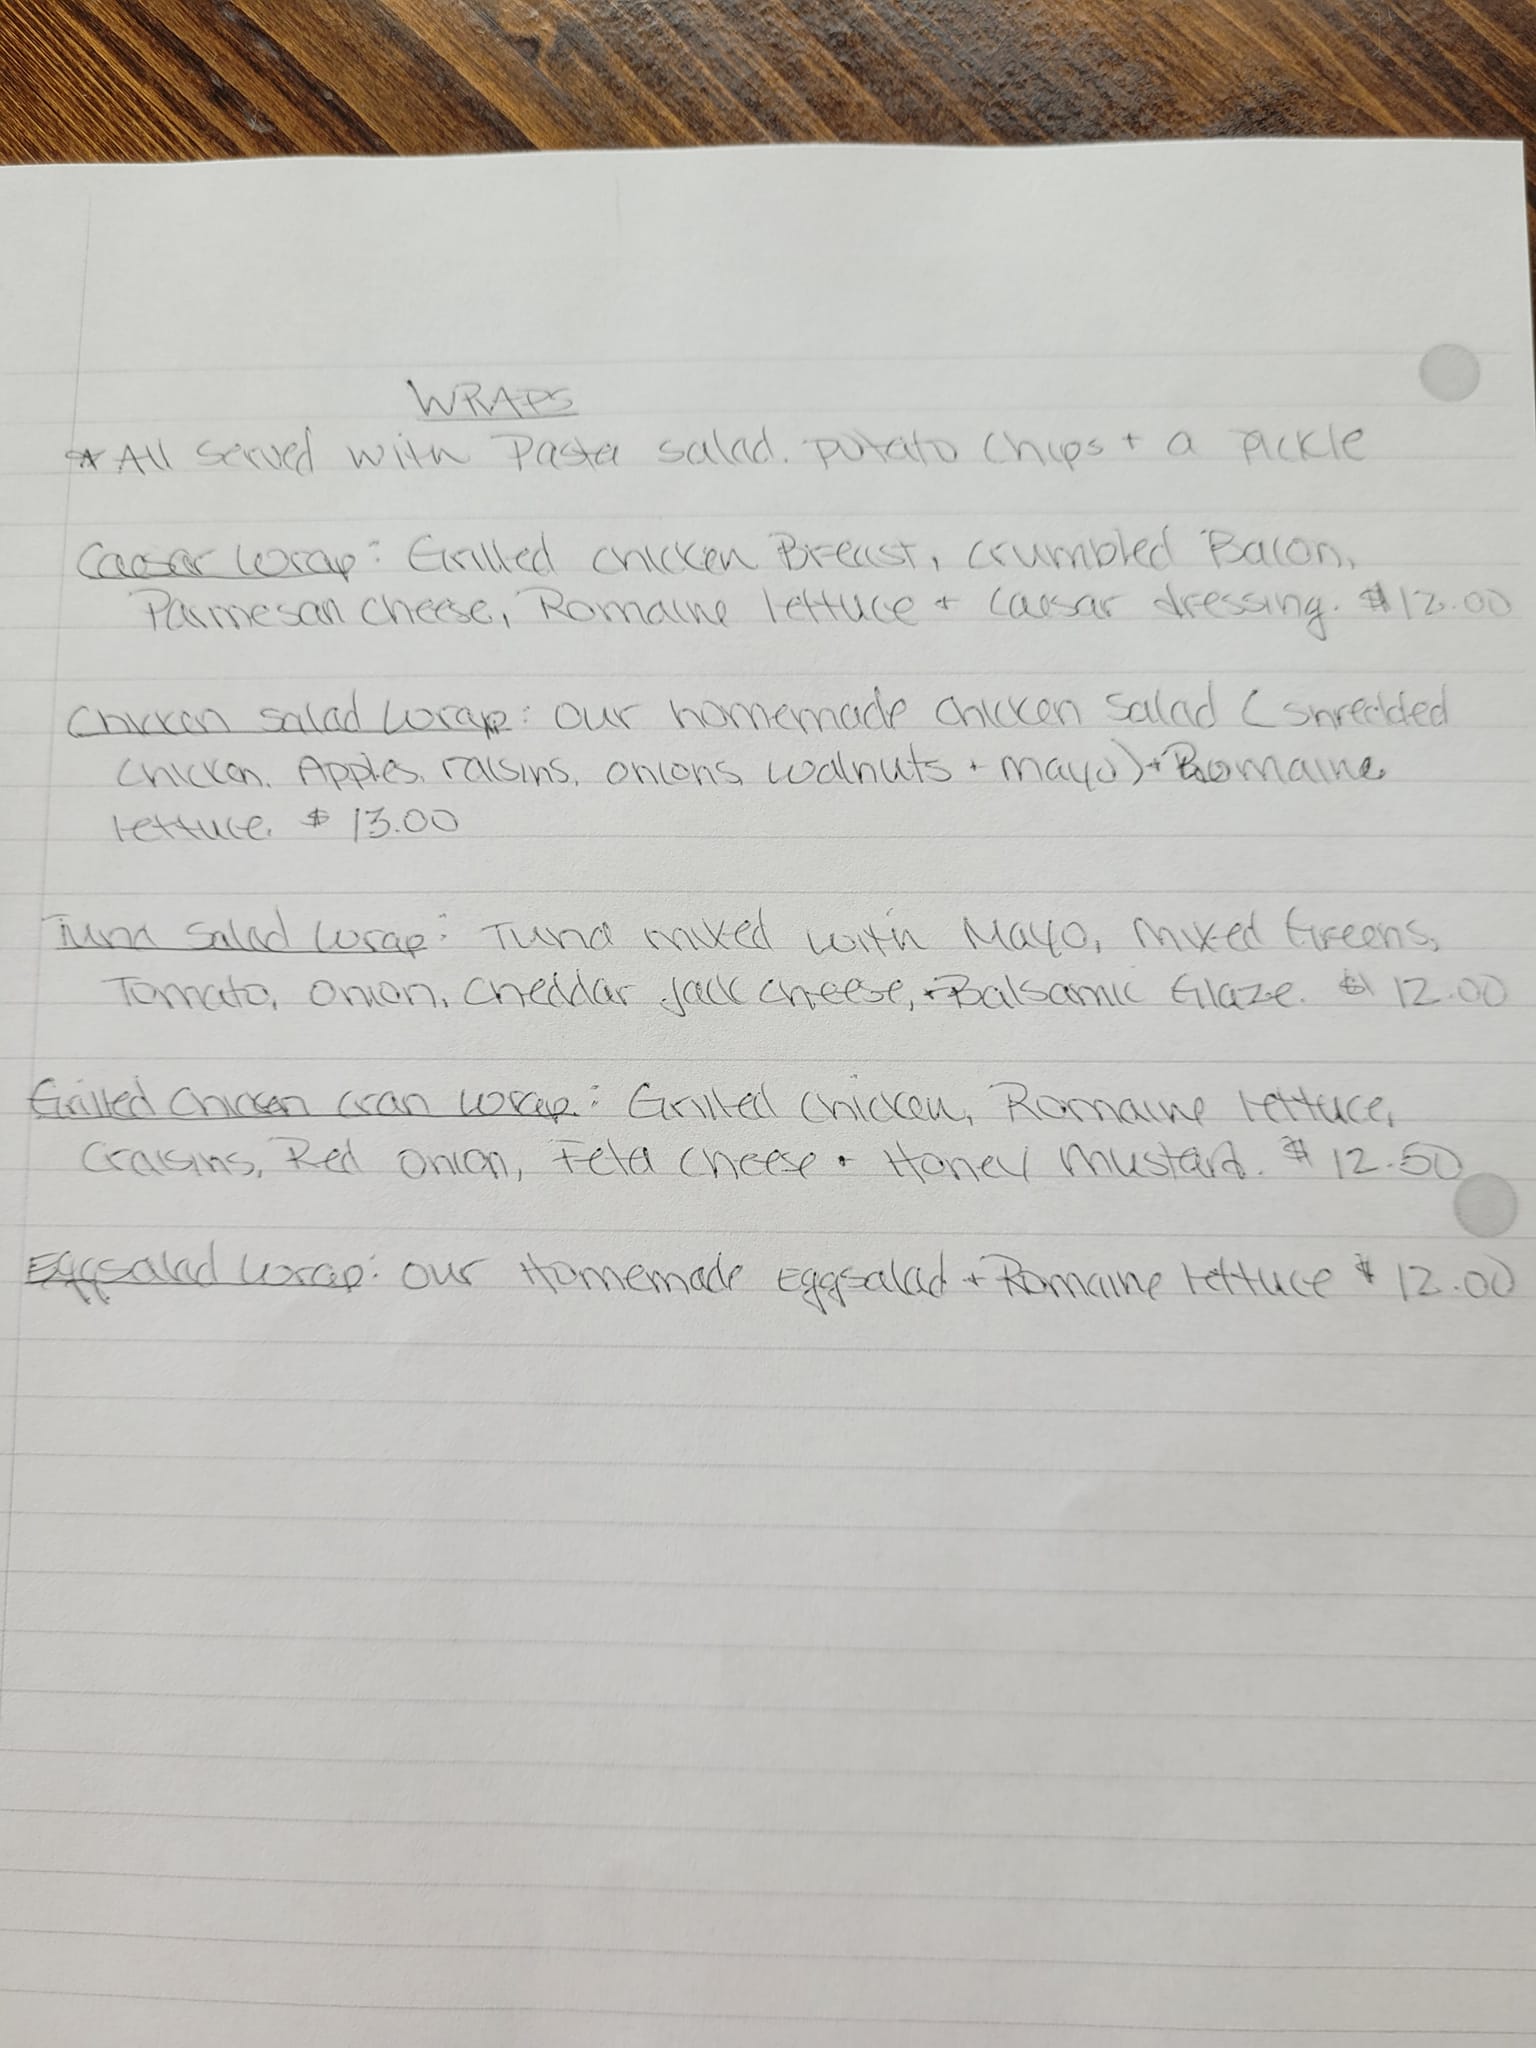 WRAPS
* All served with Pasta salad. potato chips + a pickle
Caesar Wrap: Grilled chicken Breast, crumbled Bacon,
Parmesan cheese, Romaine lettuce + Caesar dressing. $12.00
Chicken salad Wrap: our homemade chicken salad (shredded
chicken. Apples. raisins. onions, walnuts + mayo) + Romaine
lettuce. $ 13.00
Tuna Salad Wrap: Tuna mixed with Mayo, mixed Greens,
Tomato, onion, cheddar jack cheese, + Balsamic Glaze. $ 12.00
Grilled Chicken cran wrap: Grilled chicken, Romaine lettuce,
Craisins, Red onion, Feta cheese + Honey Mustard. $ 12.50
Eggsalad Wrap: our Homemade Eggsalad + Romaine lettuce $ 12.00